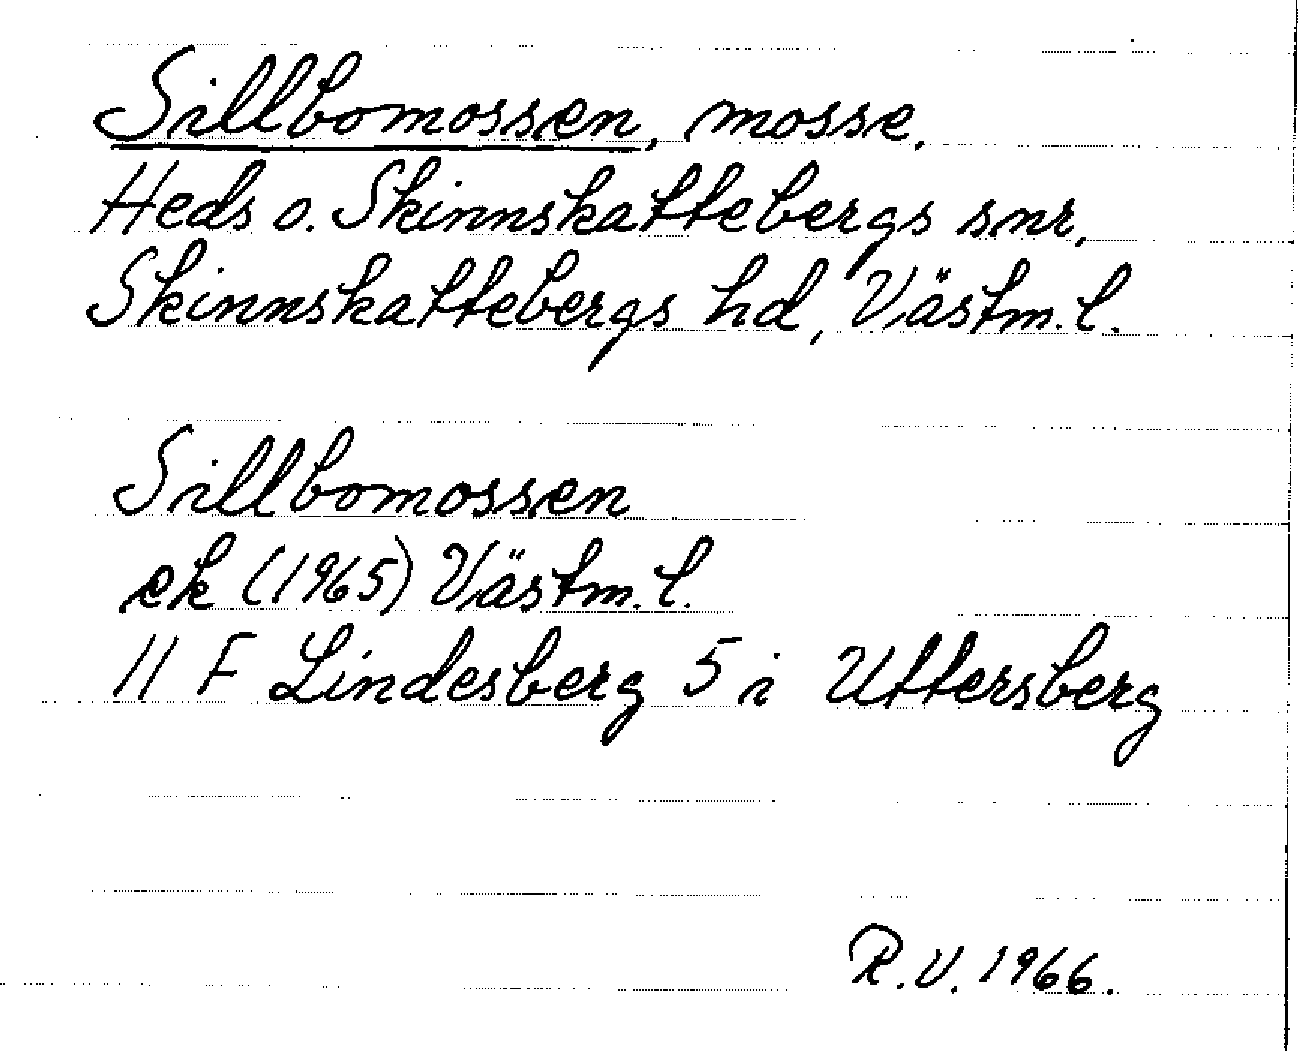 Sillbomossen, mosse,
Heds o. Skinnskattebergs snr,
Skinnskattebergs hd, Västm. l.
Sillbomossen
ek (1965) Västm. l.
11 F Lindesberg 5 i Uttersberg
R.V. 1966.